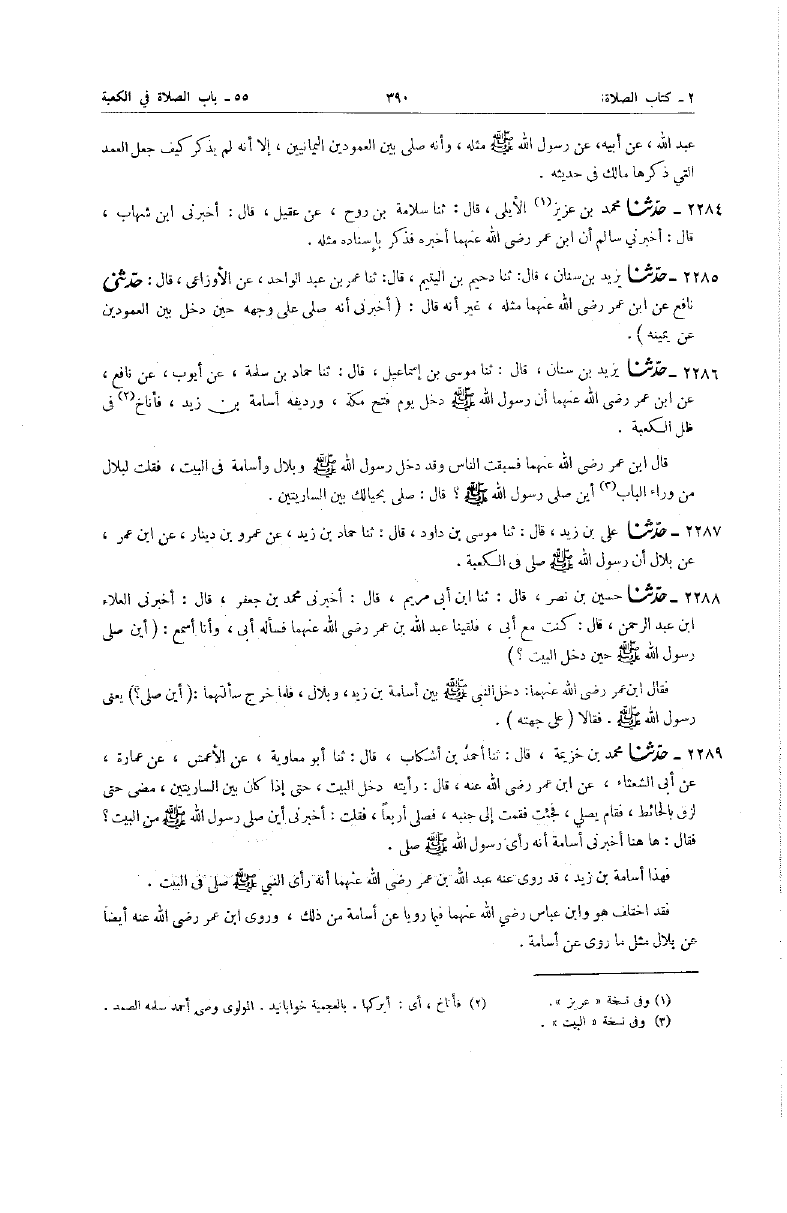 ٢ ـ كتاب الصلاة: ٣٩٠ ٥٥ ـ باب الصلاة في الكعبة
عبد الله ، عن أبيه، عن رسول الله ﷺ مثله ، وأنه صلى بين العمودين اليمانيين ، إلا أنه لم يذكر كيف جعل العمد
التي ذكرها مالك فى حديثه .
٢٢٨٤ ـ حدّثنا محمد بن عزيز(١) الأيلى ، قال : ثنا سلامة بن روح ، عن عقيل ، قال : أخبرنى ابن شهاب ،
قال : أخبرني سالم أن ابن عمر رضى الله عنهما أخبره فذكر بإسناده مثله .
٢٢٨٥ ـ حدّثنا يزيد بن سنان ، قال: ثنا دحيم بن اليتيم ، قال: ثنا عمر بن عبد الواحد ، عن الأوزاعى ، قال : حدّثنى
نافع عن ابن عمر رضى الله عنهما مثله ، غير أنه قال : ( أخبرنى أنه صلى على وجهه حين دخل بين العمودين
عن يمينه ) .
٢٢٨٦ ـ حدّثنا يزيد بن سنان ، قال : ثنا موسى بن إسماعيل ، قال : ثنا حماد بن سلمة ، عن أيوب ، عن نافع ،
عن ابن عمر رضى الله عنهما أن رسول الله ﷺ دخل يوم فتح مكة ، ورديفه أسامة بن زيد ، فأناخ(٢) فى
ظل الكعبة .
قال ابن عمر رضى الله عنهما فسبقت الناس وقد دخل رسول الله ﷺ وبلال وأسامة فى البيت ، فقلت لبلال
من وراء الباب(٣) أين صلى رسول الله ﷺ ؟ قال : صلى بحيالك بين الساريتين .
٢٢٨٧ ـ حدّثنا على بن زيد ، قال : ثنا موسى بن داود ، قال : ثنا حماد بن زيد ، عن عمرو بن دينار ، عن ابن عمر ،
عن بلال أن رسول الله ﷺ صلى فى الكعبة .
٢٢٨٨ ـ حدّثنا حسين بن نصر ، قال : ثنا ابن أبى مريم ، قال : أخبرنى محمد بن جعفر ، قال : أخبرنى العلاء
ابن عبد الرحمن ، قال : كنت مع أبى ، فلقينا عبد الله بن عمر رضى الله عنهما فسأله أبى ، وأنا أسمع : ( أين صلى
رسول الله ﷺ حين دخل البيت ؟ )
فقال ابن عمر رضى الله عنهما: دخل النبي ﷺ بين أسامة بن زيد، وبلال ، فلما خرج سألتهما : ( أين صلى؟) يعنى
رسول الله ﷺ . فقالا ( على جهته ) .
٢٢٨٩ ـ حدّثنا محمد بن خزيمة ، قال : ثنا أحمدُ بن أشكاب ، قال : ثنا أبو معاوية ، عن الأعمش ، عن عمارة ،
عن أبى الشعثاء ، عن ابن عمر رضى الله عنه ، قال : رأيته دخل البيت ، حتى إذا كان بين الساريتين ، مضى حتى
لزق بالحائط ، فقام يصلي ، فجئت فقمت إلى جنبه ، فصلى أربعاً ، فقلت : أخبرنى أين صلى رسول الله ﷺ من البيت ؟
فقال : ها هنا أخبرنى أسامة أنه رأى رسول الله ﷺ صلى .
فهذا أسامة بن زيد ، قد روى عنه عبد الله بن عمر رضى الله عنهما أنه رأى النبي ﷺ صلى فى البيت .
فقد اختلف هو وابن عباس رضي الله عنهما فيما رويا عن أسامة من ذلك ، وروى ابن عمر رضى الله عنه أيضاً
عن بلال مثل ما روى عن أسامة .
(١) وفى نسخة « عرير ». (٢) فأناخ ، أى : أبركها . بالعجمية خوابانيد . المولوى وصى أحمد سلمه الصمد .
(٣) وفى نسخة « البيت » .